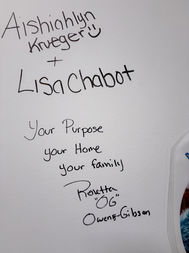 Aishiahlyn
Krueger
+
Lisa Chabot
Your Purpose
your Home
your family
Renetta
"OG"
Owens-Gibson